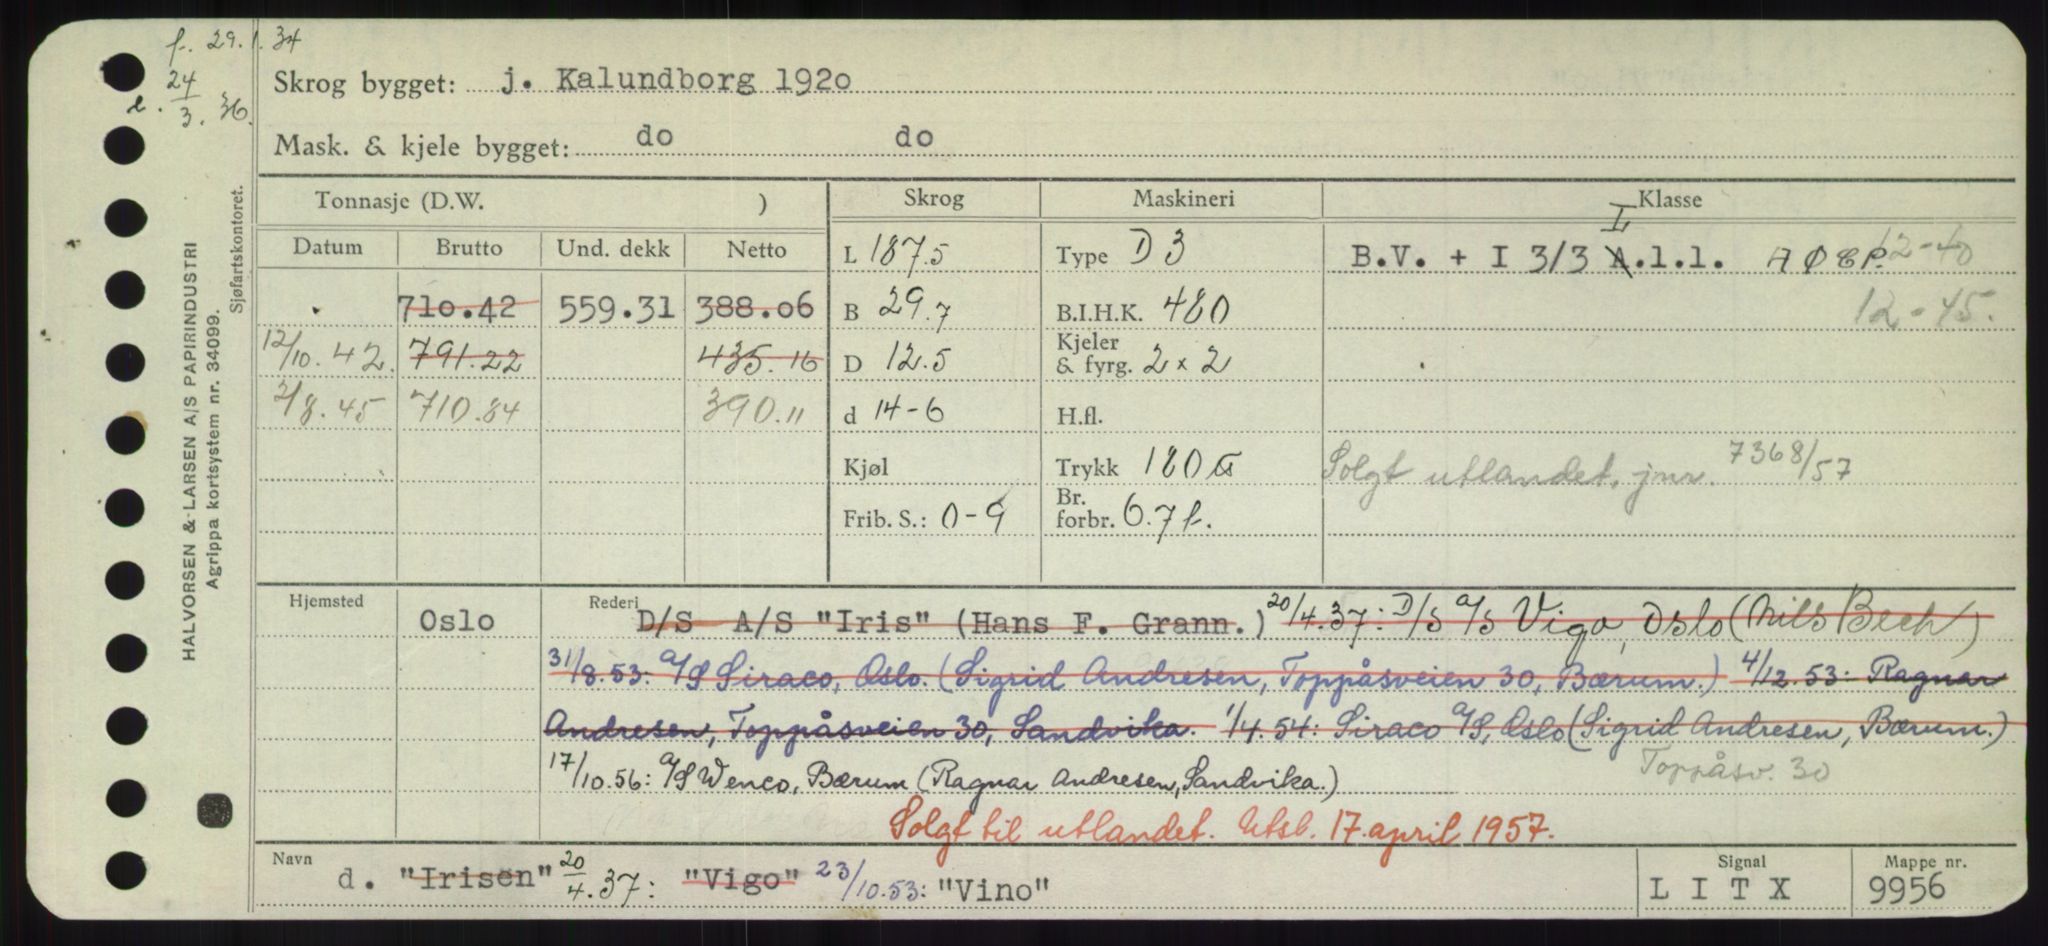 f. 29.1.34
24/3. 36.
Skrog bygget: j. Kalundborg 1920
Mask. & kjele bygget: do do
HALVORSEN & LARSEN A/S PAPIRINDUSTRI
Agrippa kortsystem nr. 34099.
Sjøfartskontoret.
Tonnasje (D.W. ) Skrog Maskineri Klasse
Datum Brutto Und. dekk Netto
L 187.5 Type D 3 B.V. + I 3/3 A.1.1. L 12-40
710.42 559.31 388.06 B 29.7 B.I.H.K. 480 12-45.
12/10.42. 791.22 435.16 D 12.5 Kjeler & fyrg. 2 x 2
2/8.45 710.84 390.11 d 14-6 H.fl.
Kjøl Trykk 180 Solgt utlandet. jnr. 7368/57
Frib. S.: 0-9 Br. forbr. 6.7 f.
Hjemsted Oslo Rederi D/S A/S "Iris" (Hans F. Grann.) 20/4.37: D/S A/S Vigo, Oslo (Nils Bech)
31/8.53: A/S Siraco, Oslo. (Sigrid Andresen, Toppåsveien 30, Bærum.) 4/12.53: Ragnar
Andresen, Toppåsveien 30, Sandvika. 1/4.54: Siraco A/S, Oslo (Sigrid Andresen, Bærum.)
Toppåsv. 30
17/10.56: A/S Wenco, Bærum (Ragnar Andresen, Sandvika.)
Solgt til utlandet. Utsl. 17. april 1957.
Navn Signal Mappe nr.
d. "Irisen" 20/4.37: "Vigo" 23/10.53: "Vino" L I T X 9956